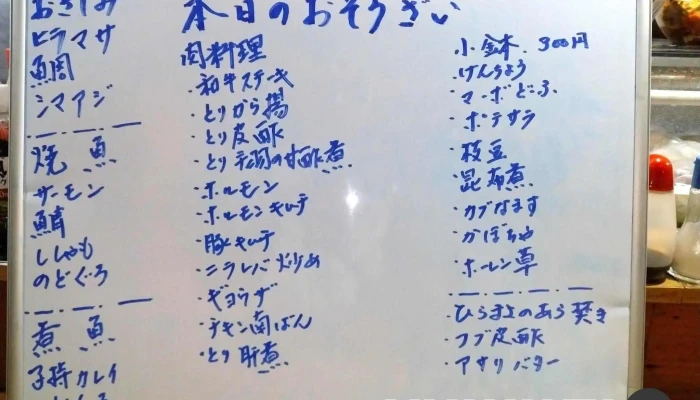 おさしみ
ヒラマサ
鯛
シマアジ
焼 魚
サーモン
鯖
ししゃも
のどぐろ
煮 魚
子持カレイ
本日のおそうざい
肉料理
・和牛ステーキ
・とりから揚
・とり皮酢
・とり手羽の甘酢煮
・ホルモン
・ホルモンキムチ
・豚キムチ
・ニラレバ炒め
・ギョウザ
・チキン南ばん
・とり肝煮
小鉢. 300円
・けんちょう
・マーボどうふ
・ポテサラ
・枝豆
・昆布煮
・カブなます
・かぼちゃ
・ホーレン草
・ひらまさのあら焚き
・フグ皮酢
・アサリバター